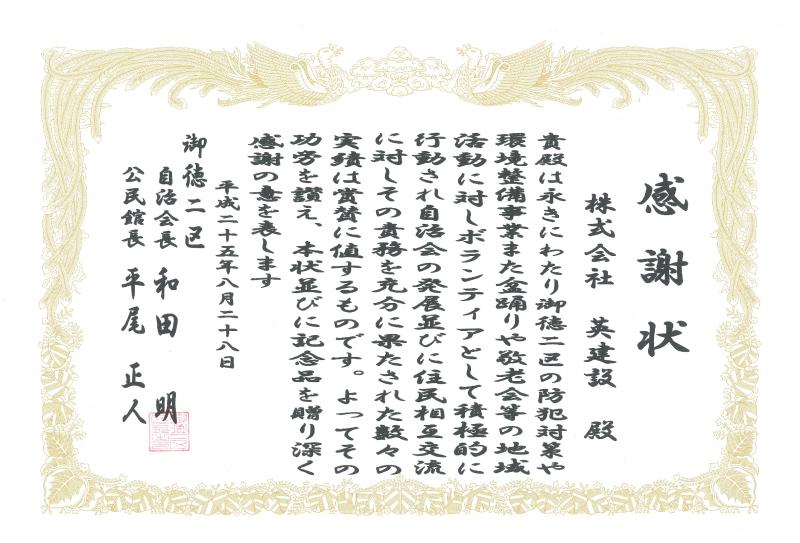 感謝状
株式会社 英建設 殿
貴殿は永きにわたり御徳二区の防犯対策や
環境整備事業また盆踊りや敬老会等の地域
活動に対しボランティアとして積極的に
行動され自治会の発展並びに住民相互交流
に対しその責務を充分に果たされた数々の
実績は賞賛に値するものです。よってその
功労を讃え、本状並びに記念品を贈り深く
感謝の意を表します
平成二十五年八月二十八日
御徳二区
自治会長 和田 明
公民館長 平尾 正人